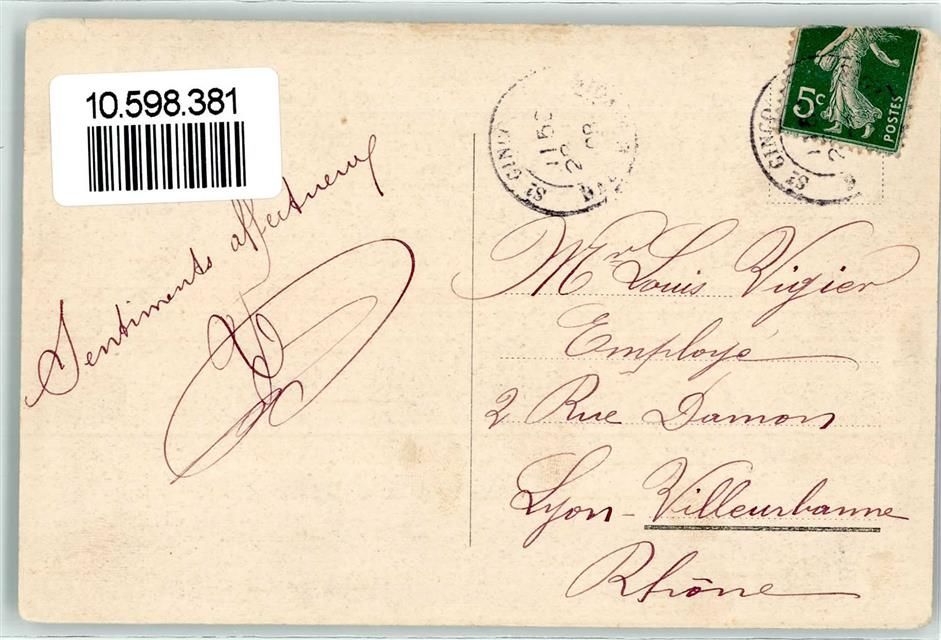 10.598.381
Sentiments affectueux
St GINGO
11 50
5c
POSTES
Mr Louis Vigier
Employé
2 Rue Damon
Lyon - Villeurbanne
Rhône